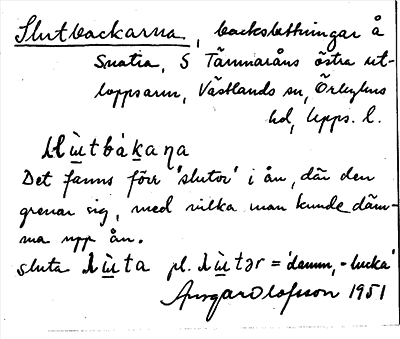 Slutbackarna, backsluttningar å
Snatra, S Tämnaråns östra ut-
loppsarm, Västlands sn, Örbyhus
hd, Upps. l.
Det fanns förr "slutor" i ån, där den
grenar sig, med vilka man kunde däm-
ma upp ån.
sluta pl. = 'damm, -lucka'
Ansgar Olofsson 1951